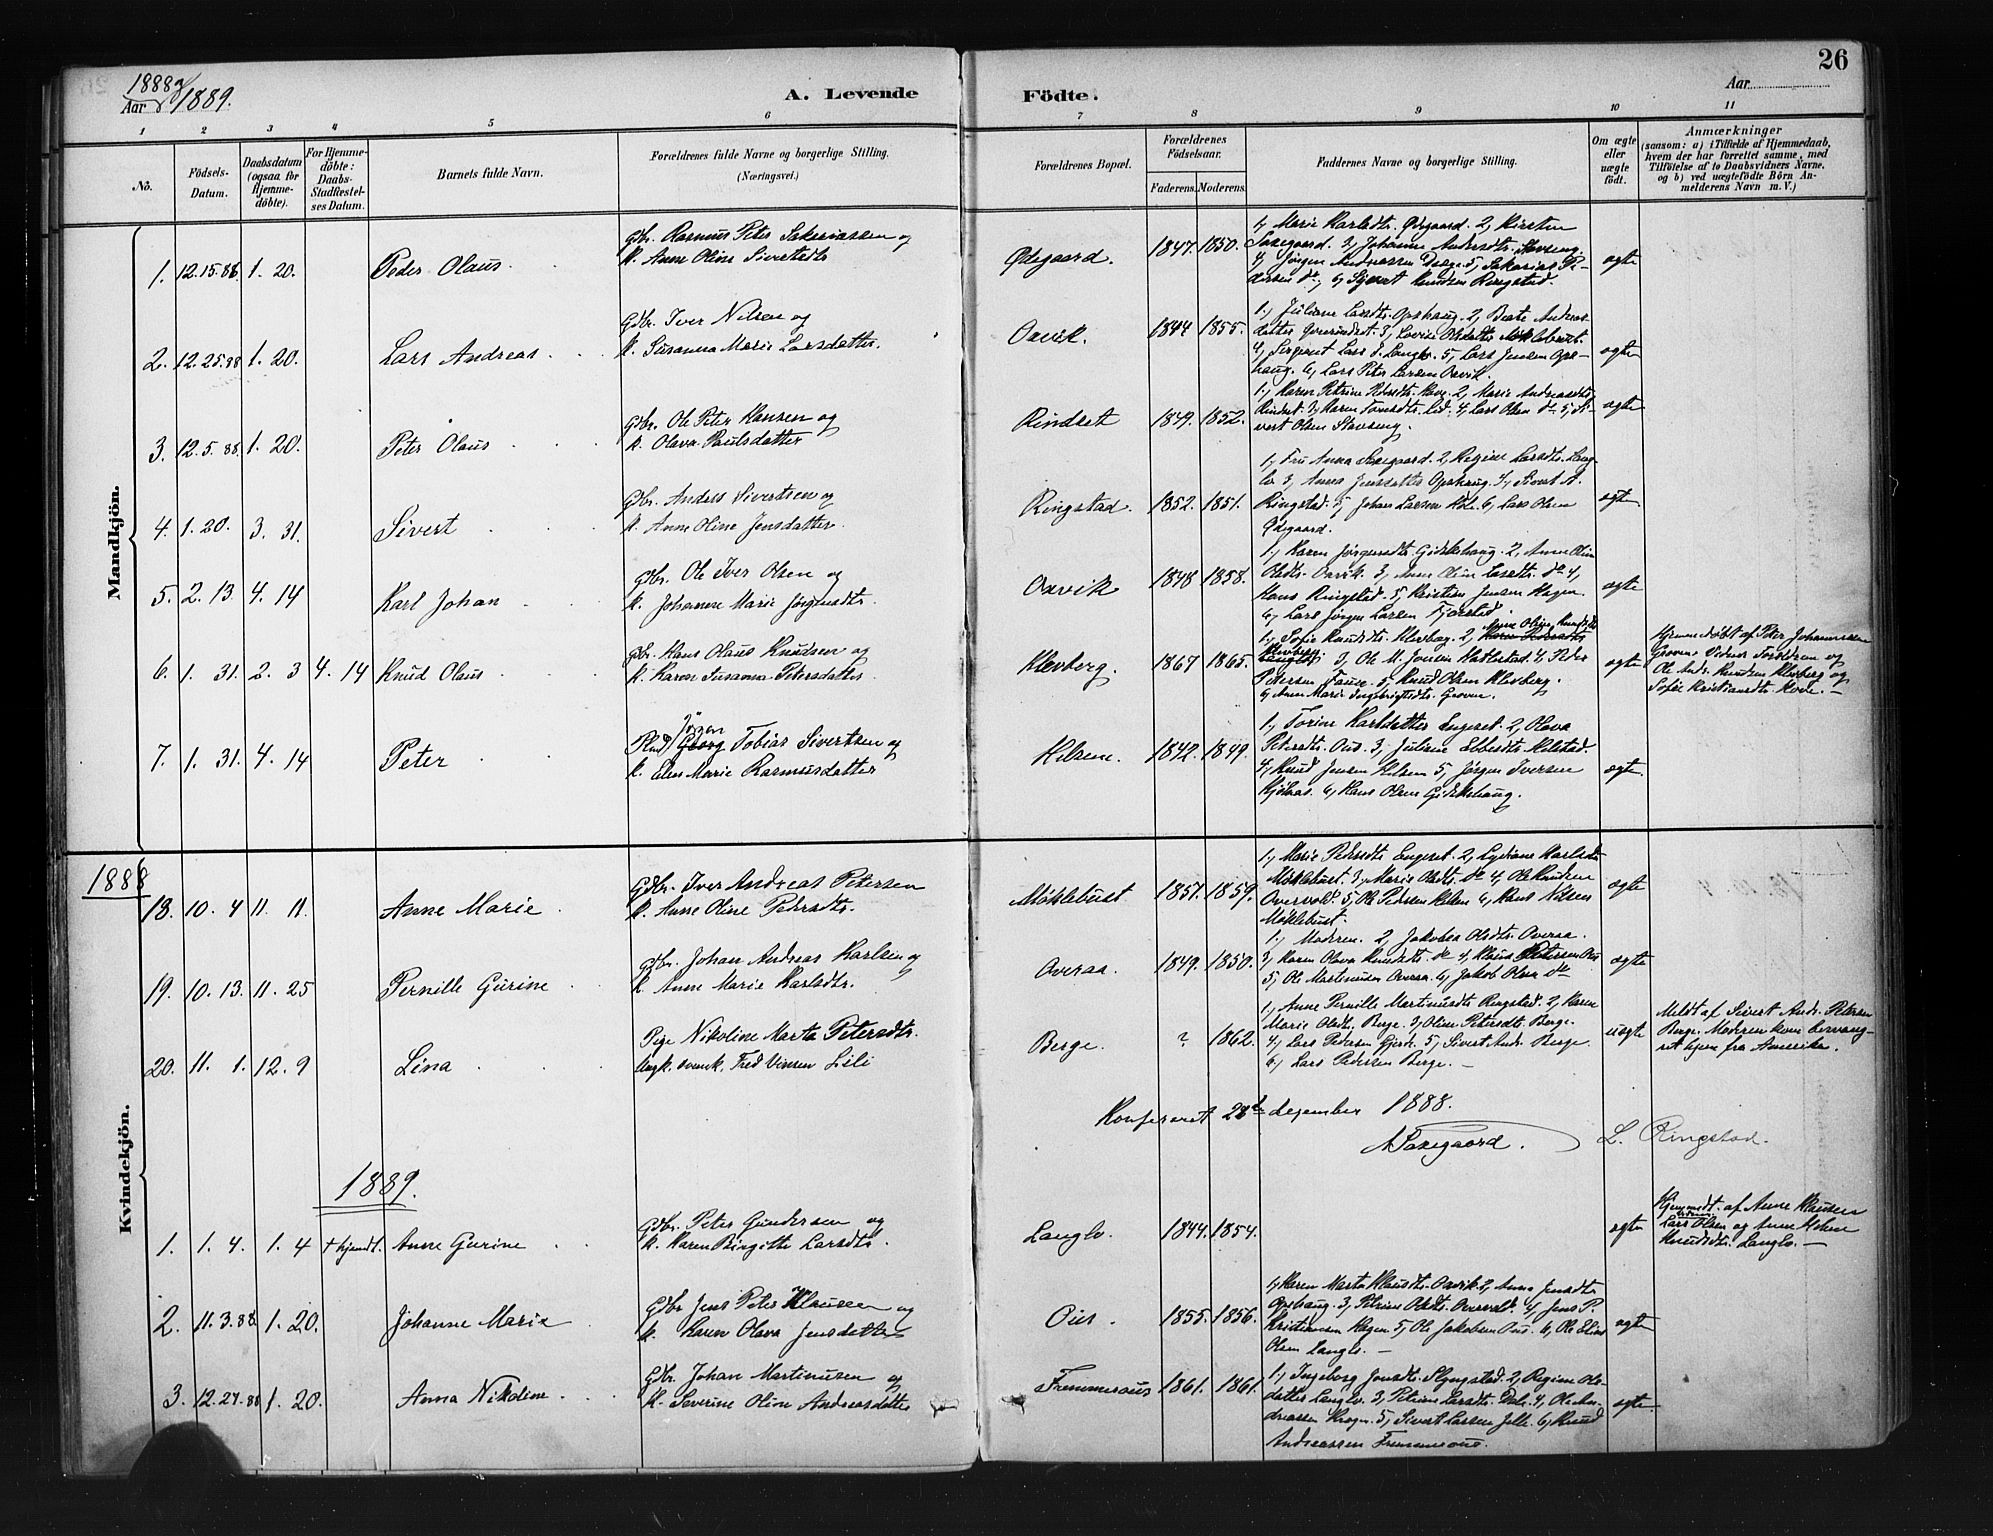 1888 & 1889.
Aar
A. Levende Födte.
Aar
26
1 2 3 4 5 6 7 8 9 10 11
No.
Födsels-Datum.
Daabsdatum (ogsaa for Hjemmedöbte).
For Hjemmedöbte: Daabs-Stadfestelses Datum.
Barnets fulde Navn.
Forældrenes fulde Navne og borgerlige Stilling.
(Næringsvei.)
Forældrenes Bopæl.
Forældrenes Födselsaar.
Faderens. Moderens.
Faddernes Navne og borgerlige Stilling.
Om ægte eller uægte födt.
Anmærkninger
(saasom: a) i Tilfælde af Hjemmedaab, hvem der har forrettet samme, med Tilföielse af to Daabsvidners Navne, og b) ved uægtefödte Börn Anmelderens Navn m.V.)
Mandkjön.
1. 12.15.88 1. 20. Peder Olaus
Gbr. Rasmus Peter Sakariassen og
K. Anne Oline Sivertsdtr
Ødegaard. 1847. 1850.
1, Marie Karlsdtr. Ødegaard. 2, Kirsten
Saxegaard. 3, Johanne Andersdtr.
4, Jörgen Andreassen 5, Sakarias Pe-
dersen do, 6, Sivert Knudsen Ringstad.
ægte
2. 12.25.88 1. 20. Lars Andreas
Gbr. Iver Nilsen og
K. Susanna Marie Larsdatter.
Overvik. 1844 1855.
1, Juliane Larsdtr. Opshaug. 2, Beate Andreas-
datter 3, Lovise Olsdatter Möklebust.
4, Sergeant Lars O. Langlo. 5, Lars Jensen Ops-
haug. 6, Lars Peter Larsen
ægte
3. 12.5.88. 1. 20. Peter Olaus
Gbr. Ole Peter Hansen og
K. Olava Paulsdatter
Rindset 1849. 1852.
1, Karen Petrine 2, Marie Andreasdtr.
Rindset. 3, Karen 4, Lars Olsen do. 5, Si-
vert Olsen Stavseng.
ægte
4. 1. 20. 3. 31. Sivert
Gbr. Anders Sivertsen og
K. Anne Oline Jensdatter
Ringstad. 1852. 1851.
1, Fru Anna Saxegaard. 2, Regine Larsdtr. Lang-
lo 3, Anna Jensdatter Opshaug. 4, Sivert A.
Ringstad. 5, Johan Larsen 6, Lars Olsen
Ødegaard.
ægte
5. 2. 13. 4. 14 Karl Johan
Gbr. Ole Iver Olsen og
K. Johanne Marie Jörgensdtr.
1848 1858.
1, Karen Jörgensdtr. Gidskehaug. 2, Anne Oline
Olsdtr. 3, Anne Oline Larsdtr. do 4,
Hans Ringstad. 5, Kristian Jensen Hagen
6, Lars Jörgen Larsen Fjörstad.
ægte
6. 1. 31. 2. 3 4. 14 Knud Olaus
Gbr. Hans Olaus Knudsen og
K. Karen Susanna Petersdatter.
Klevberg. 1867 1865.
1, Sofie Knudsdtr. Klevberg. 2, Anne Oline Knudsdtr
3, Ole M. Jensen 4, Peder
Petersen 5, Knud Olsen Klevberg.
6, Anne Marie Ingebrigtsdtr. Groven.
ægte
Hjemmedöbt af Peter Johannessen
Groven Vidner Forældrene og
Ole Andr. Knudsen Klevberg og
Sofie Kristiansdtr.
7. 1. 31. 4. 14 Peter
Georg Jörgen Tobias Sivertsen og
K. Elen Marie Rasmusdatter
Helsem. 1842. 1849.
1, Torine Karlsdatter Engeset. 2, Olava
Petersdtr. Ous. 3, Juliane Ebbesdtr.
4, Knud Jensen Helsem 5, Jörgen Iversen
6, Hans Olsen Gidskehaug.
ægte
1888
Kvindekjön.
18. 10. 4 11. 11. Anne Marie
Gdbr. Iver Andreas Petersen
K. Anne Oline Pedersdtr.
Möklebust 1857. 1859.
1, Marie Pedersdtr. Engeset. 2, Lydiane Karlsdtr
Möklebust. 3, Marie Olsdtr. do 4, Ole Knudsen
Overvold. 5, Ole Pedersen 6, Hans Nilsen
Möklebust.
ægte
19. 10. 13. 11. 25 Pernille Gurine
Gdbr. Johan Andreas Karlsen og
K. Anne Marie Karlsdtr.
Overaa. 1849. 1850.
1, Moderen. 2, Jakobea Olsdtr. Overaa.
3, Karen Olava Knudsdtr. do 4, Klaus Petersen Ous
5, Ole Martinusen Overaa. 6, Jakob Olsen do
ægte
20. 11. 1. 12. 9 Lina
Pige Nikoline Marta Petersdtr.
Ungk. svensk. Fred Vinsen Lisli
Berge. ? 1862.
1, Anne Pernille Martinusdtr Ringstad. 2, Karen
Marie Olsdtr. Berge. 3, Oline Petersdtr. Berge.
4, Lars Pedersen 5, Sivert Andr. Berge
6, Lars Pedersen Berge.
uægte
Meldt af Sivert Andr. Petersen
Berge. Moderen kom besvang-
ret hjem fra Amerika.
Konfereret 28de Dezember 1888.
A Saxegaard. L. Ringstad.
1889.
1. 1. 4. 1. 4 + hjemdt. Anne Gurine
Gdbr. Peter Gundersen og
K. Karen Birgitte Larsdtr.
Langlo. 1844. 1854.
ægte
Hjemmedt. af Anne Klausen
Vidner: Lars Olsen og Anne Helene
Knudsdtr. Langlo.
2. 11.3.88. 1. 20. Johanne Marie
Gdbr Jens Peter Klausen og
K. Karen Olava Jensdatter
Ous. 1855. 1856.
1, Karen Marta Klausdtr. 2, Anna Jensdtr
Opshaug. 3, Petrine Olsdtr. Overvold. 4, Jens P.
Kristiansen Hagen. 5, Ole Jakobsen Ous. 6, Ole Elias
Olsen Langlo.
ægte
3. 12.27.88 1. 20. Anna Nikoline
Gdbr. Johan Martinusen og
K. Severine Oline Andreasdatter
Fremmerous 1861. 1861.
1, Ingeborg Jonsdtr. Slyngstad. 2, Regine Ols-
datter Langlo. 3, Petrine Larsdtr. Dale. 4, Ole An-
dreassen 5, Sivert Larsen 6, Knud
Andreassen Fremmerous.
ægte